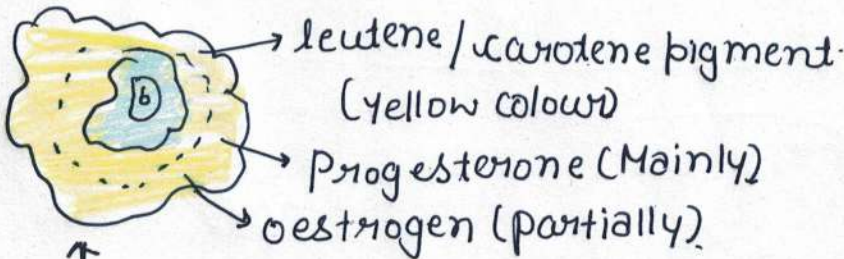 leutene/carotene pigment.
(yellow colour)
6
Progesterone (Mainly)
oestrogen (partially).